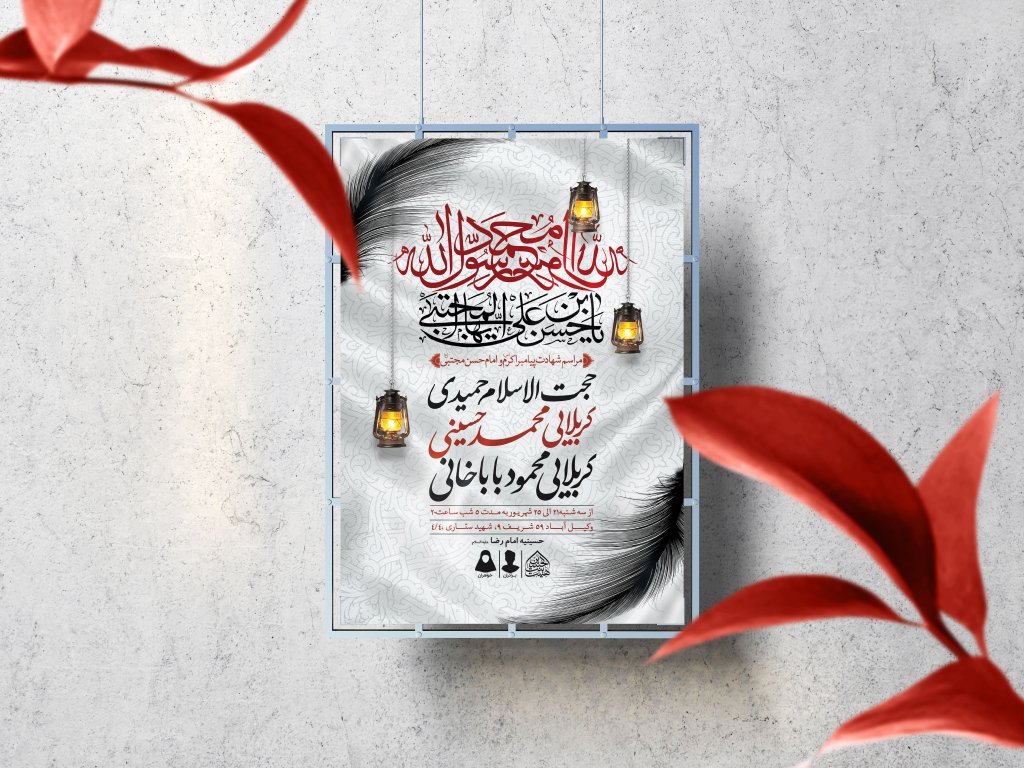 محمد رسول الله
یا حسن ابن علی ایها المجتبی
مراسم شهادت پیامبر اکرم و امام حسن مجتبی
حجت الاسلام حمیدی
کربلایی محمد حسینی
کربلایی محمود باباخانی
از سه شنبه ۲۱ الی ۲۵ شهریور به مدت ۵ شب ساعت ۲۰
وکیل آباد ۵۹ شریف ۹، شهید ستاری ۴/۴۰
حسینیه امام رضا علیه السلام
برادران
خواهران